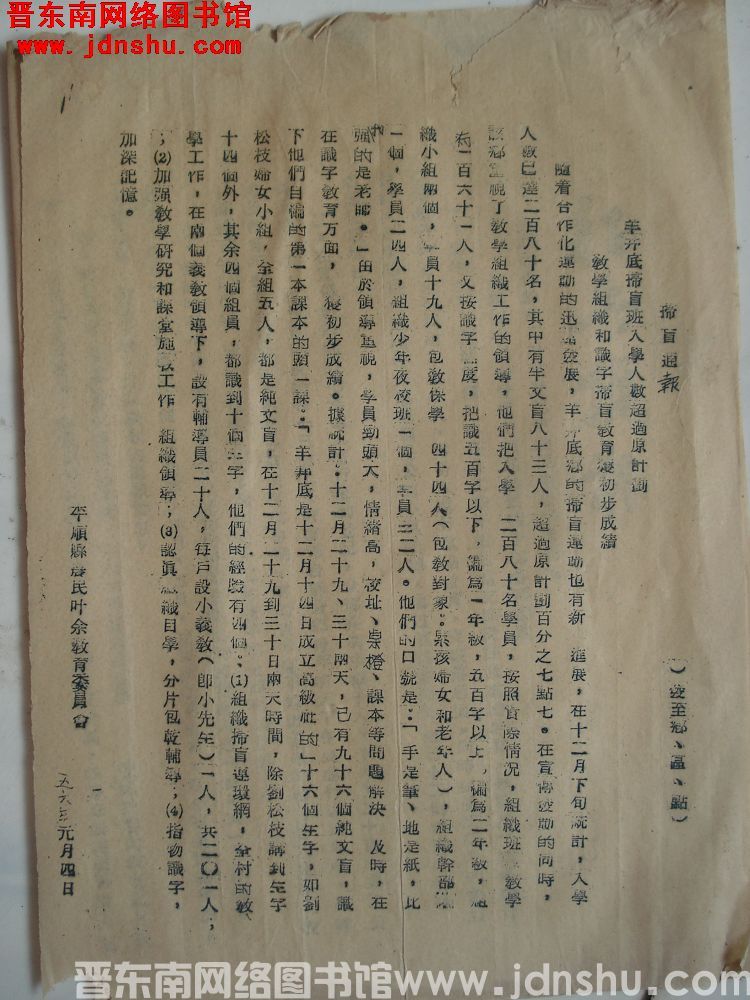 晋东南网络图书馆
www.jdnshu.com
掃盲通報
(發至鄉、區、點)
羊井底掃盲班入學人数超過原計劃
教學組織和識字掃盲教育獲初步成績
隨着合作化運動的迅速發展,羊井底鄉的掃盲運動也有新 進展,在十二月下旬統計,入學
人数已達二百八十名,其中有半文盲八十三人,超過原計劃百分之七點七。在宣傳發動的同時,
該鄉重視了教學組織工作的領導,他們把入學 二百八十名學員,按照實際情况,組織班 教學
有一百六十一人,又按識字 度,把識五百字以下,編爲一年級,五百字以上,編爲二年級,組
織小組兩個,學員十九人,包教保學 四十四人(包教對象:累孩婦女和老年人),組織幹部
一個,學員二四人,組織少年夜校班一個,學員三二人。他們的口號是:「手是筆、地是紙,比
强的是老師。」由於領導重視,學員勁頭大,情緒高,校址、桌櫈、課本等問題解决 及時,在
在識字教育方面, 獲初步成績。據統計:十二月二十九、三十兩天,已有九十六個純文盲,識
下他們自編的第一本課本的頭一課:「羊井底是十二月十四日成立高級社的」十六個生字,如劉
松枝婦女小組,全組五人,都是純文盲,在十二月二十九到三十日兩天時間,除劉松枝講到生字
十四個外,其余四個組員,都識到十個生字,他們的經驗有四個:(1)組織掃盲運環網,全村的教
學工作,在兩個義教領導下,設有輔導員二十人,每戶設小義教(卽小先生)一人,共二〇一人;
;(2)加强教學研究和課堂施教工作 組織領導;(3)認眞組織自學,分片包乾輔導;(4)指物識字,
加深記憶。
平順縣農民叶余教育委員會
五六年元月四日
晋东南网络图书馆 www.jdnshu.com